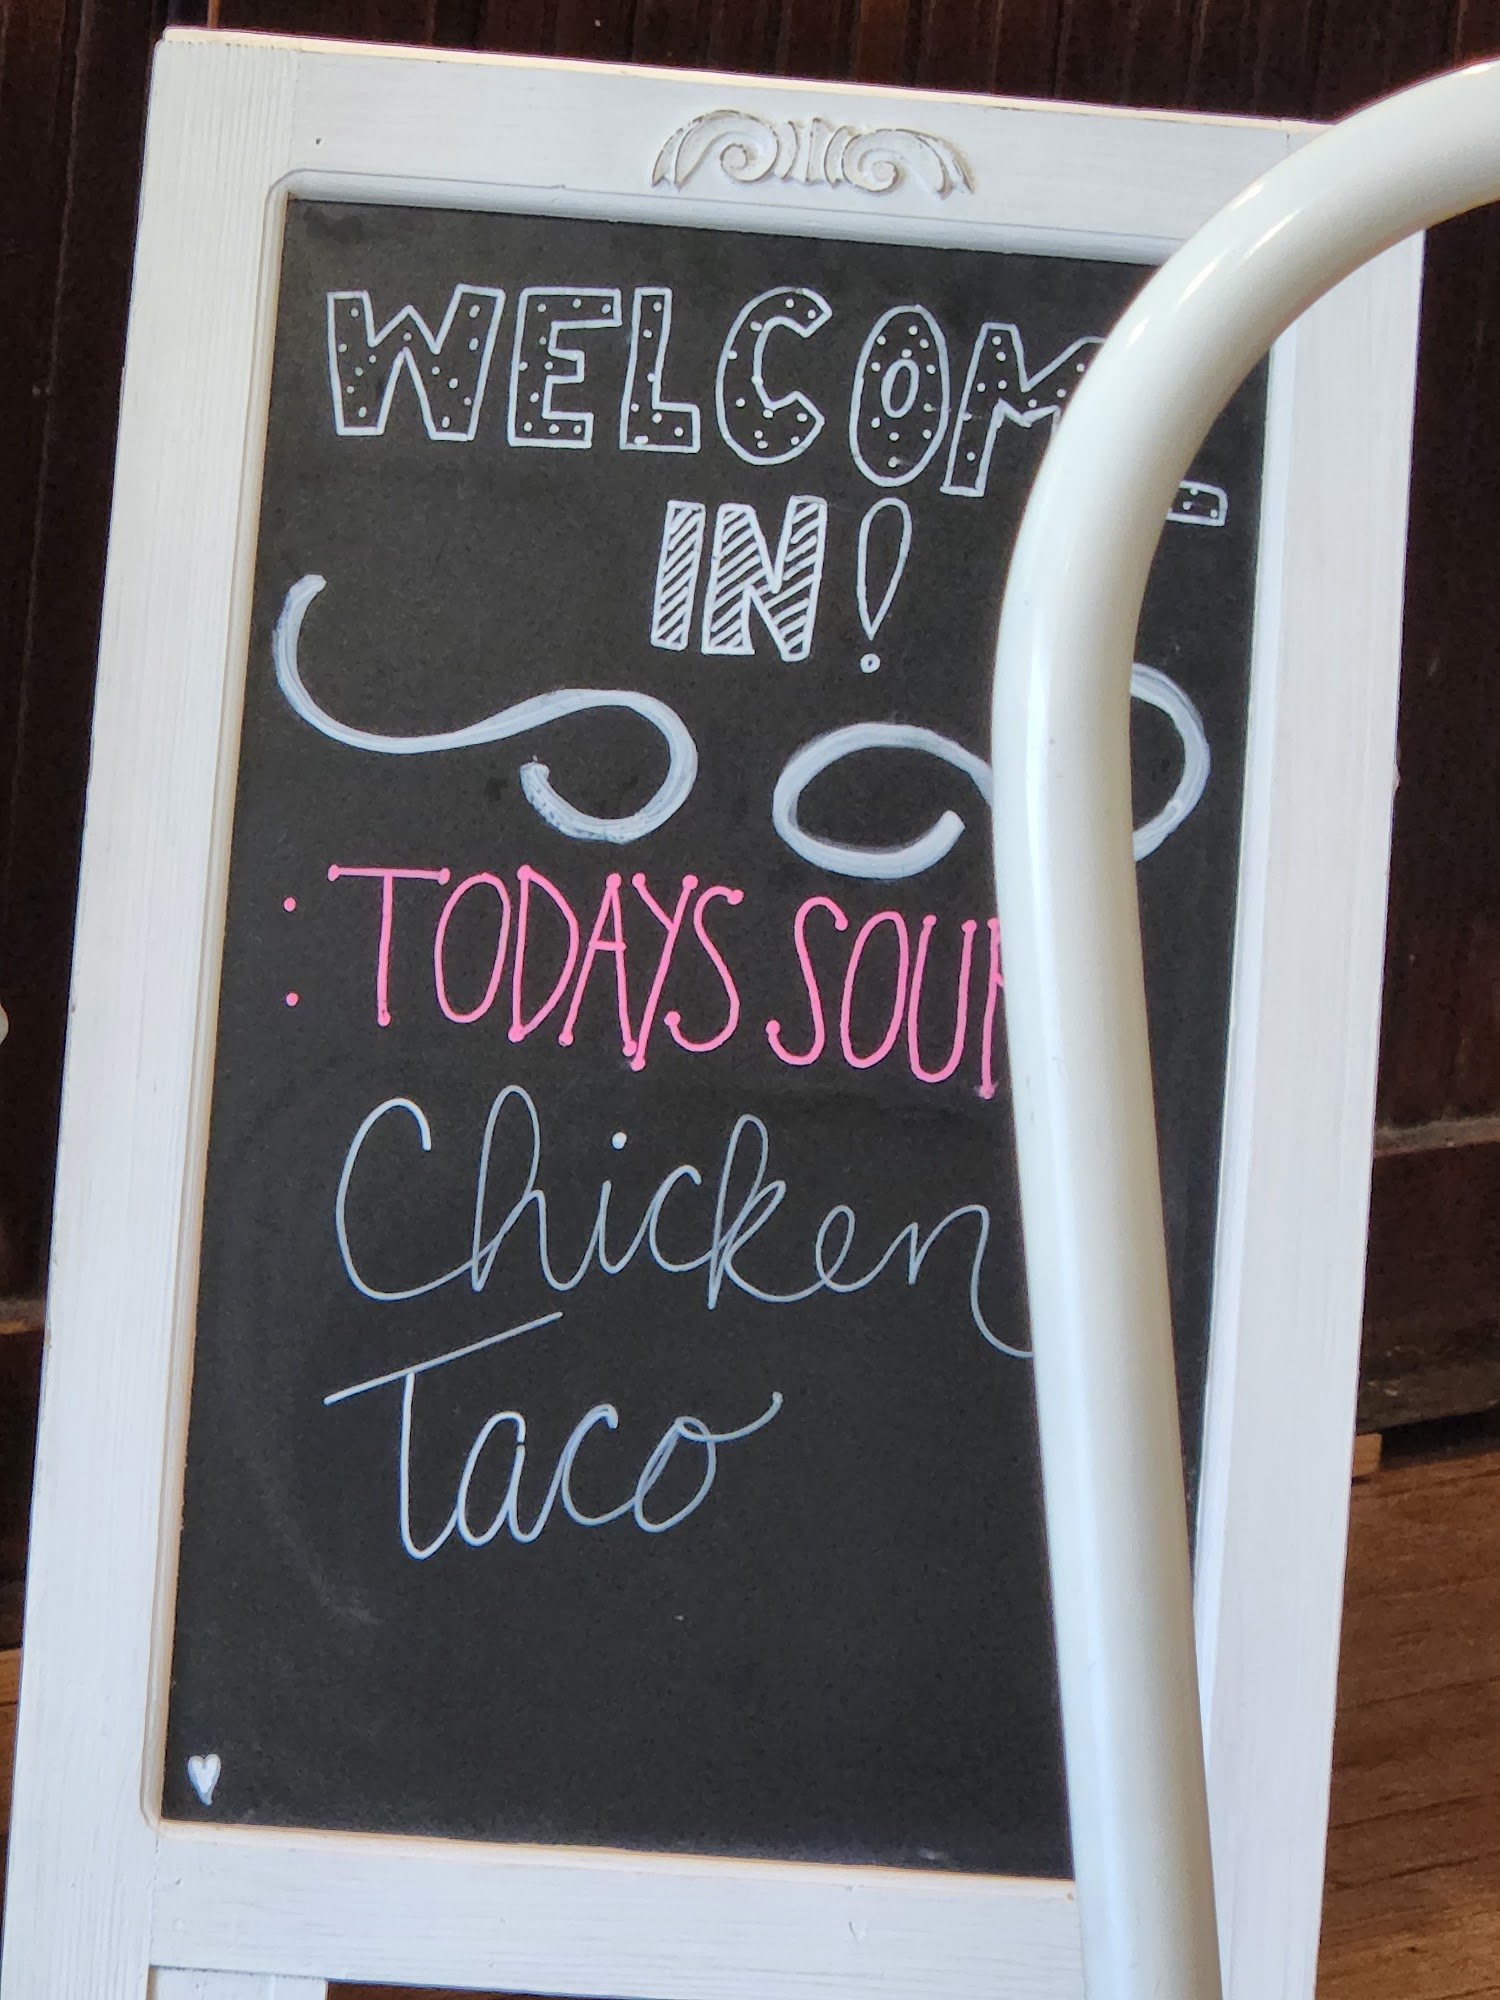 WELCOME
IN!
: TODAYS SOUP
Chicken
Taco